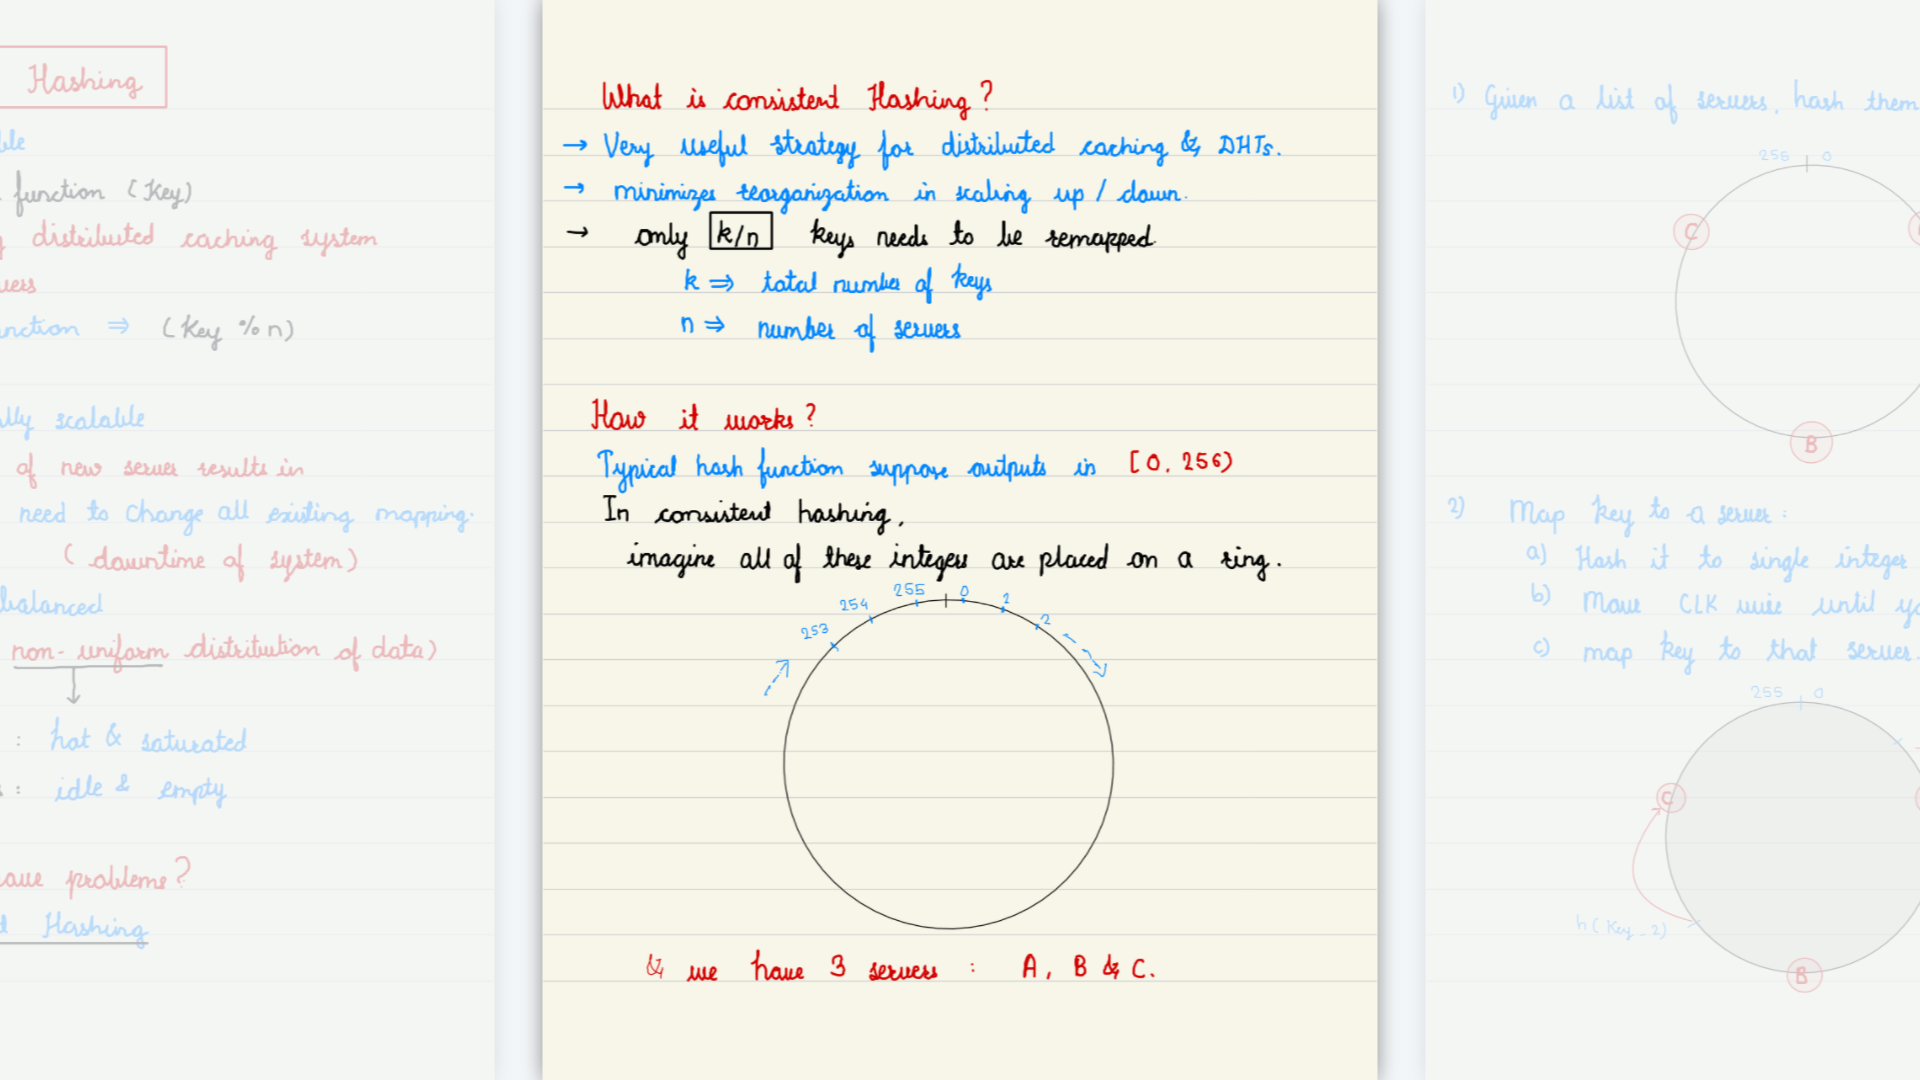 Hashing
function (Key)
distributed caching system
function ⇒ (Key % n)
scalable
of new server results in
need to change all existing mapping.
(downtime of system)
balanced
non-uniform distribution of data)
: hot & saturated
: idle & empty
problems?
Hashing
What is consistent Hashing?
→ Very useful strategy for distributed caching & DHTs.
→ minimizes reorganization in scaling up / down.
→ only k/n keys needs to be remapped.
k ⇒ total number of keys
n ⇒ number of servers
How it works?
Typical hash function suppose outputs in [0, 256)
In consistent hashing,
imagine all of these integers are placed on a ring.
253 254 255 0 1 2
& we have 3 servers : A, B & C.
1) Given a list of servers, hash them
255 0
C
B
2) Map key to a server :
a) Hash it to single integer
b) Move CLK wise until
c) map key to that server.
255 0
C
h(Key_2)
B